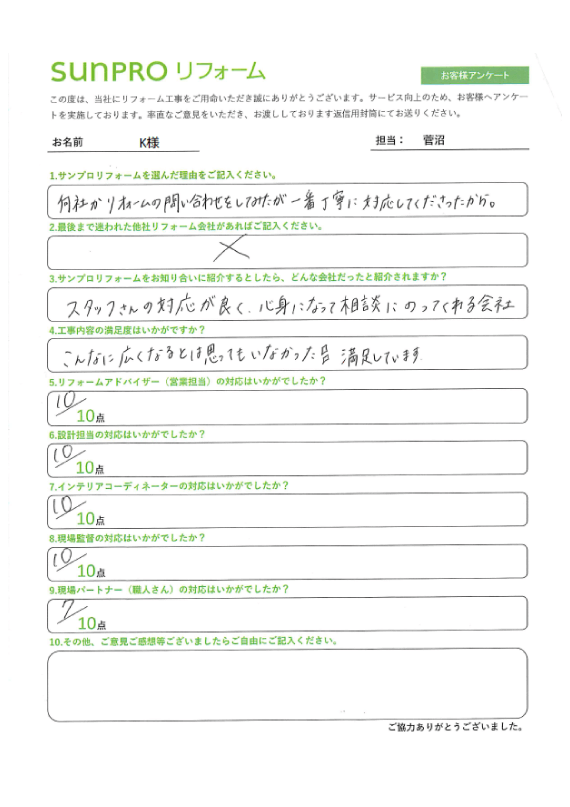 sunPRO リフォーム
お客様アンケート
この度は、当社にリフォーム工事をご用命いただき誠にありがとうございます。サービス向上のため、お客様へアンケー
トを実施しております。率直なご意見をいただき、お渡ししております返信用封筒にてお送りください。
お名前 K様 担当： 菅沼
1.サンプロリフォームを選んだ理由をご記入ください。
何社かリォームの問い合わせをしてみたが一番丁寧に対応してくださったから。
2.最後まで迷われた他社リフォーム会社があればご記入ください。
×
3.サンプロリフォームをお知り合いに紹介するとしたら、どんな会社だったと紹介されますか？
スタッフさんの対応が良く、心身になって相談にのってくれる会社
4.工事内容の満足度はいかがですか？
こんなに広くなるとは思ってもいなかった 満足しています
5.リフォームアドバイザー（営業担当）の対応はいかがでしたか？
10/10点
6.設計担当の対応はいかがでしたか？
10/10点
7.インテリアコーディネーターの対応はいかがでしたか？
10/10点
8.現場監督の対応はいかがでしたか？
10/10点
9.現場パートナー（職人さん）の対応はいかがでしたか？
7/10点
10.その他、ご意見ご感想等ございましたらご自由にご記入ください。
ご協力ありがとうございました。